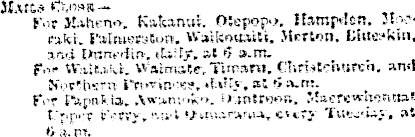 Mails Close—
For Maheno, Kakanui, Otepopo, Hampden, Moe-
raki, Palmerston, Waikouaiti, Merton, Blueskin,
and Dunedin, daily, at 6 a.m.
For Waitaki, Waimate, Timaru, Christchurch, and
Northern Provinces, daily, at 6 a.m.
For Papakia, Awamoko, Duntroon, Maerewhenua,
Upper Ferry, and Omarama, every Tuesday, at
6 a.m.